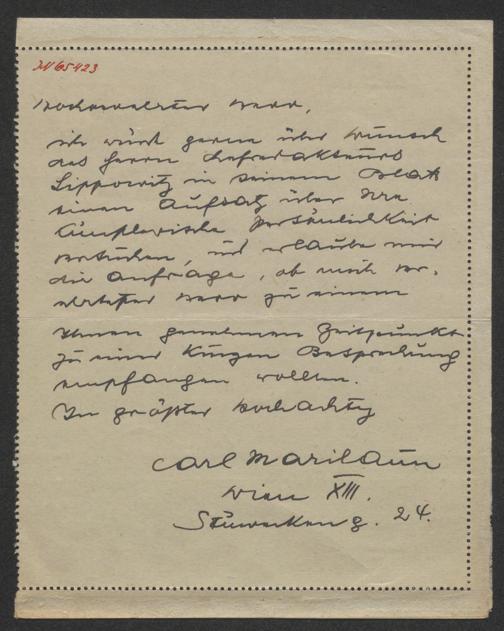 IN 65423
Hochverehrter Herr,
ich würde gerne über Wunsch
des Herrn Chefredakteurs
Lippowitz in seinem Blatt
einen Aufsatz über Ihre
künstlerische Persönlichkeit
versuchen, und erlaube mir
die Anfrage, ob mich ver-
ehrtester Herr zu einem
Ihnen genehmen Zeitpunkt
zu einer kurzen Besprechung
empfangen wollten.
In größter Hochachtg
Carl Marilaun
Wien XIII.
g. 24.